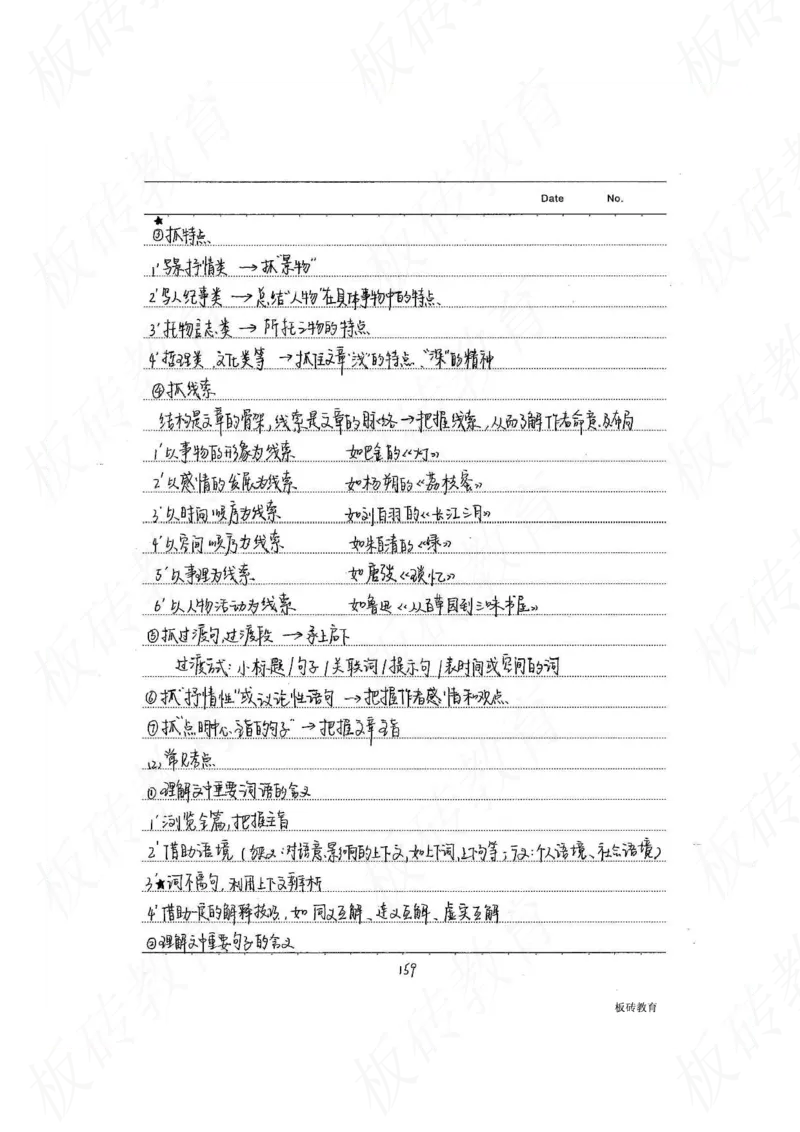 Date No.
★
③抓特点
1' 写景抒情类 → 抓"景物"
2' 写人纪事类 → 总结"人物"在具体事物中的特点、
3' 托物言志类 → 所托之物的特点
4' 哲理类、文化类等 → 抓住文章"浅"的特点、"深"的精神
④抓线索
结构是文章的骨架,线索是文章的脉络→把握线索,从而了解作者命意及布局
1' 以事物的形象为线索 如巴金的《灯》
2' 以感情的发展为线索 如杨朔的《荔枝蜜》
3' 以时间顺序为线索 如刘白羽的《长江三日》
4' 以空间顺序为线索 如朱自清的《绿》
5' 以事理为线索 如唐弢《琐忆》
6' 以人物活动为线索 如鲁迅《从百草园到三味书屋》
⑤抓过渡句,过渡段 → 承上启下
过渡方式:小标题/句子/关联词/提示句/表时间或空间的词
⑥抓"抒情性"或议论性语句 → 把握作者感情和观点、
⑦抓"点明中心、主旨的句子" → 把握文章主旨
(2)常见考点
①理解文中重要词语的含义
1' 浏览全篇,把握主旨
2' 借助语境(狭义:对语意影响的上下文,如上下词,上下句等;广义:个人语境、社会语境)
3'★词不离句,利用上下文辨析
4' 借助一定的解释技巧,如同义互解、逆义互解、虚实互解
②理解文中重要句子的含义
159
板砖教育